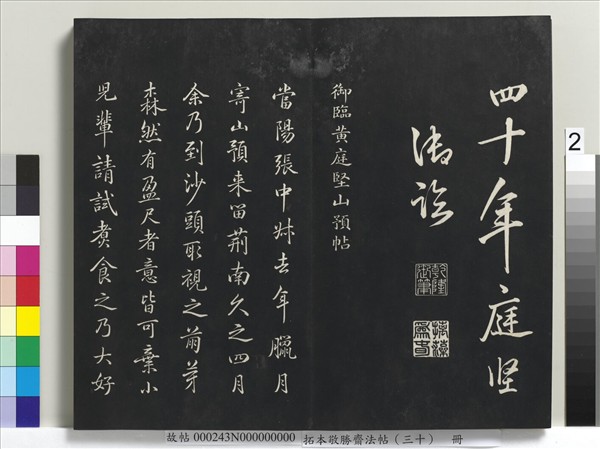 四十年庭坚
御臨
乾隆御筆
御臨黄庭堅山預帖
當陽張中叔去年臘月
寄山預来留荆南久之四月
余乃到沙頭取視之萌芽
森然有盈尺者意皆可棄小
兒輩請試煑食之乃大好
2
故帖 000243N000000000 拓本敬勝齋法帖（三十） 冊